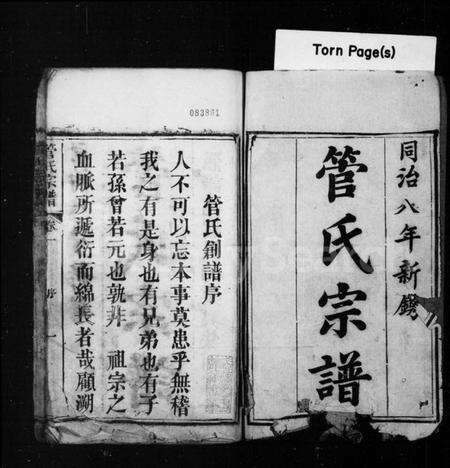 Torn Page(s)
同治八年新鐫
管氏宗譜
083861
管氏創譜序
人不可以忘本事莫患乎無稽
我之有是身也有兄弟也有子
若孫曾若元也孰非 祖宗之
血脈所遞衍而綿長者哉顧溯
管氏宗譜 卷一 序 一